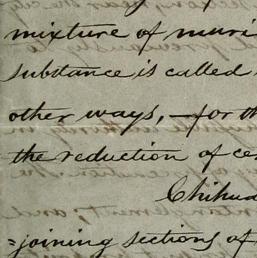 mixture of muri
substance is called
other ways, — for th
the reduction of ce
Chihua
=joining sections of